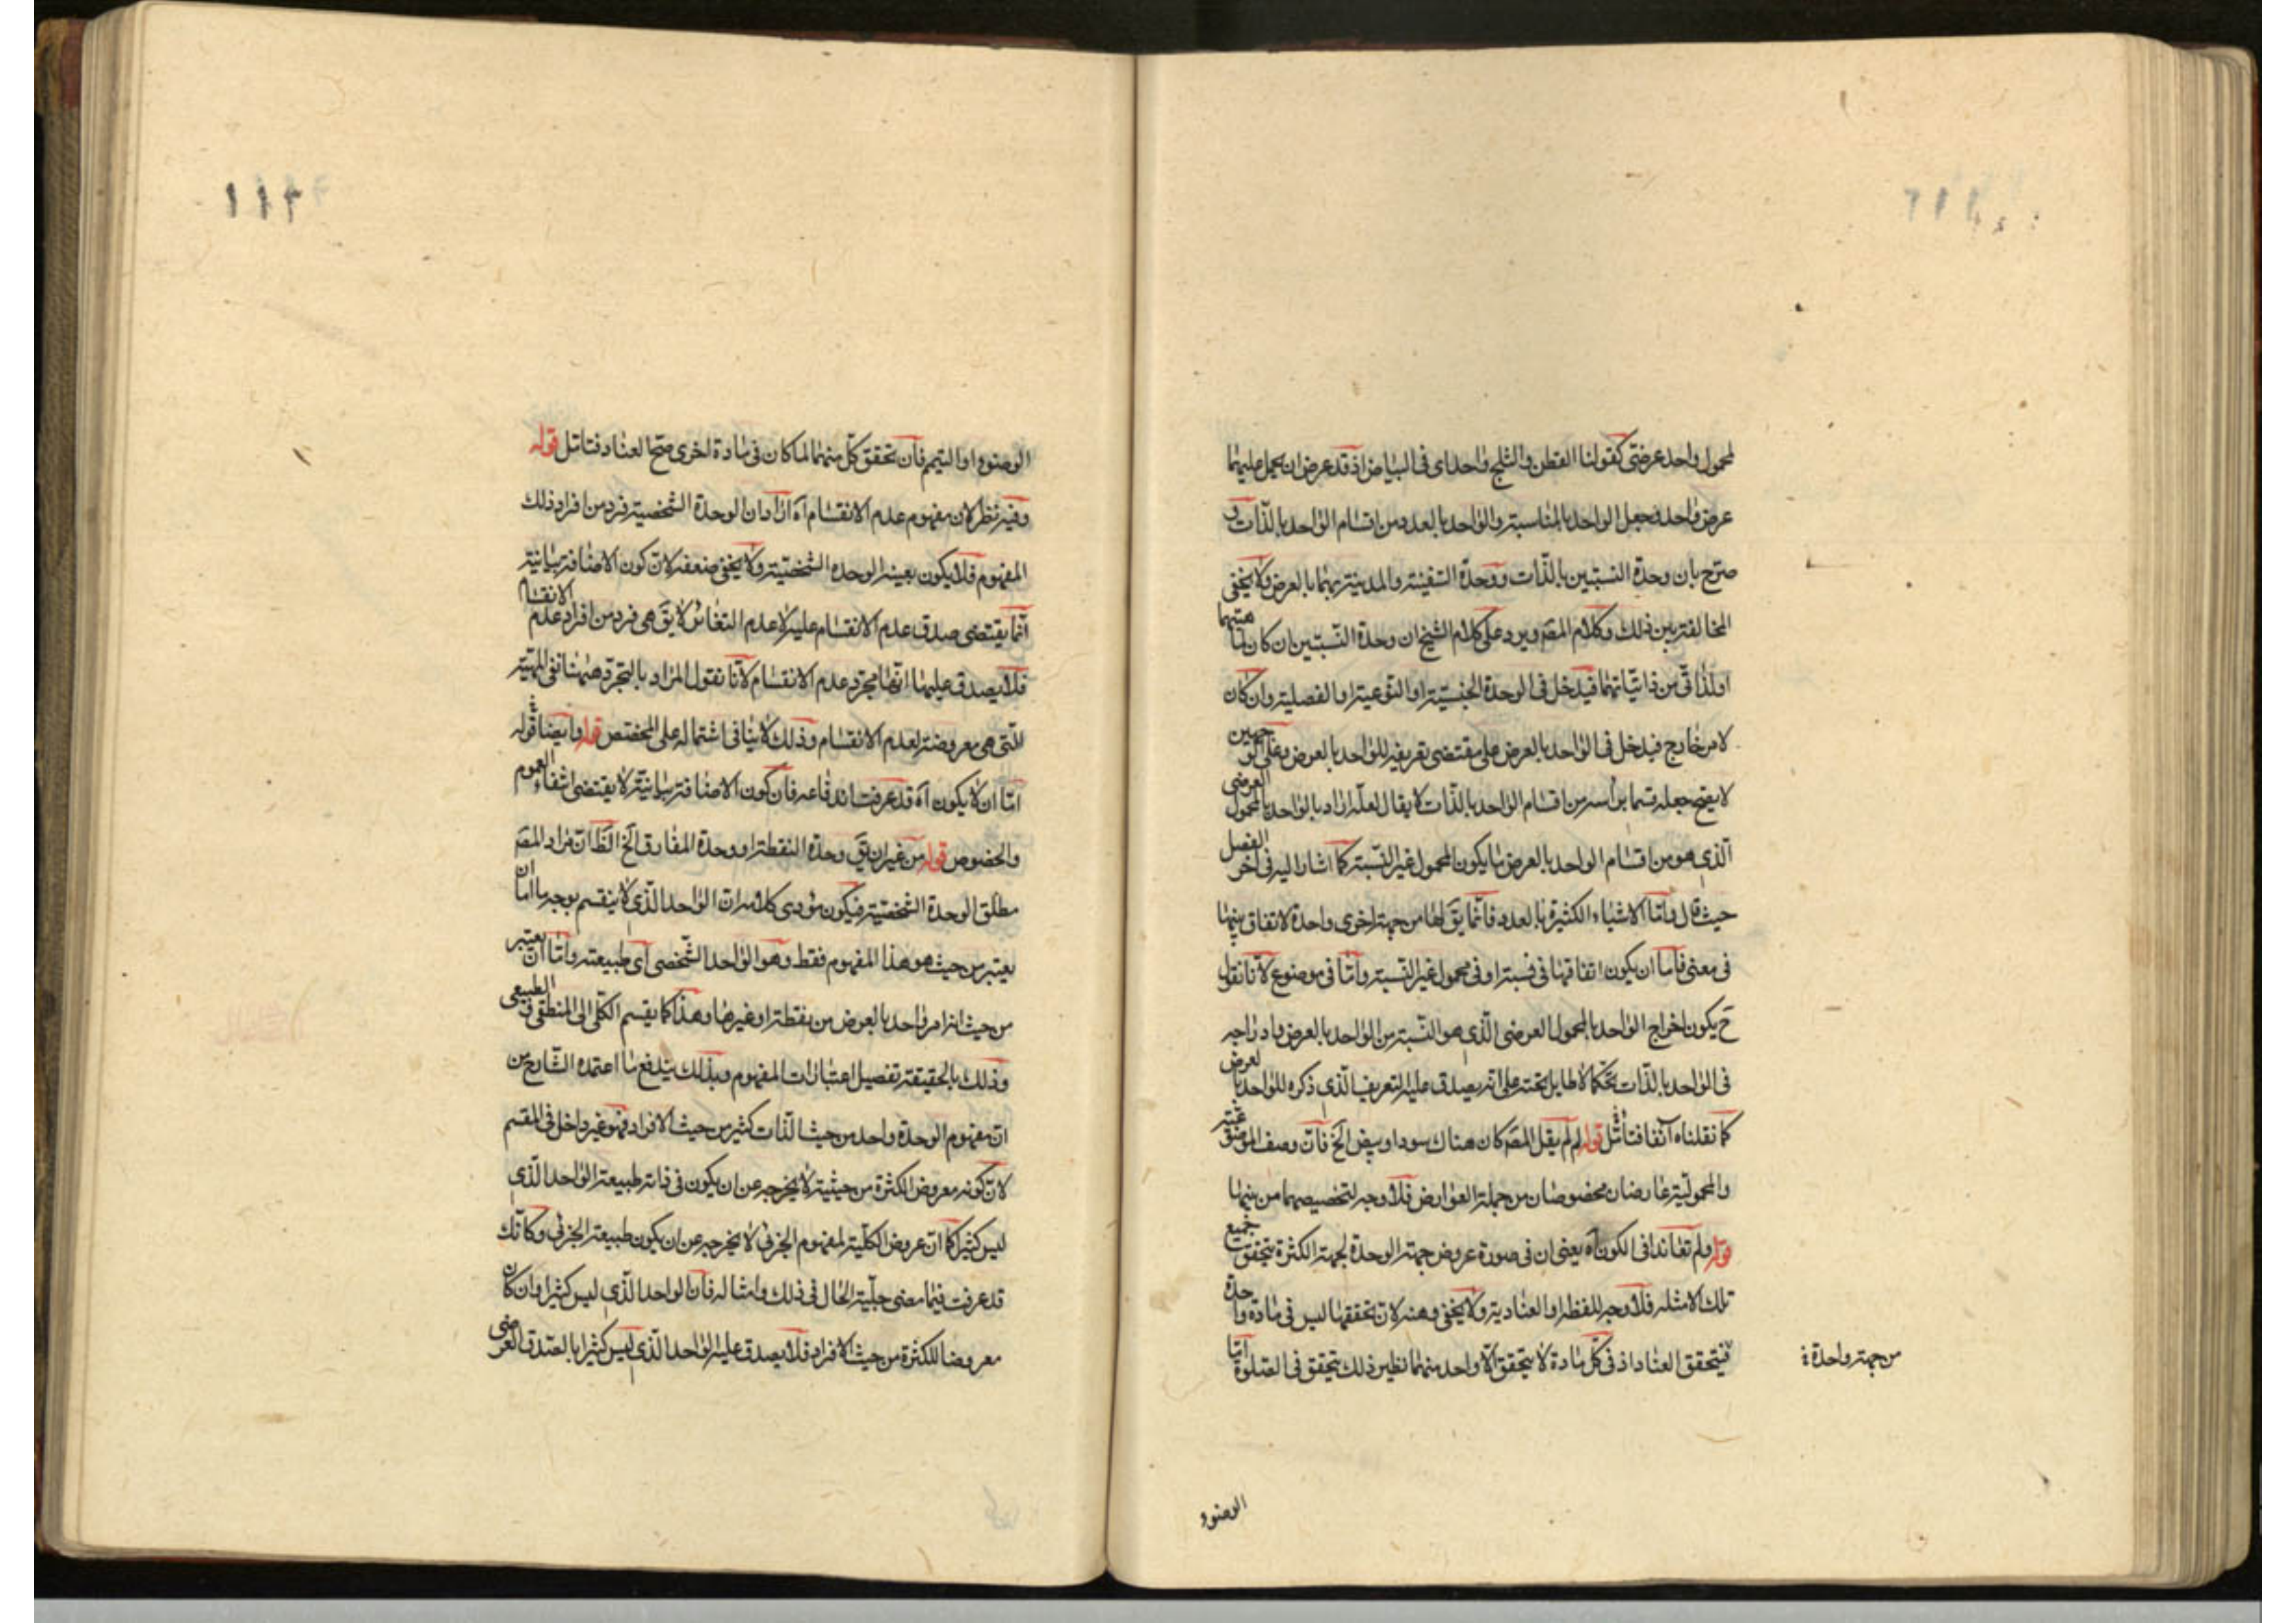 لمحمول واحد عرضی کقولنا القطن والثلج واحد ای فی البیاض اذ قد عرض ان یحمل علیهما
عرض واحد فجعل الواحد بالمناسبة والواحد بالعدد من اقسام الواحد بالذات و
صرّح بان وحدة النسبتین بالذات ووحدة السفینة والمدینة بهما بالعرض ولا یخفی
المخالفة بین ذلک وکلام المصّ ویرد علی کلام الشیخ ان وحدة النسبتین ان کان لماهیتهما
او لذاتی من ذاتیاتهما فیدخل فی الوحدة الجنسیة او النوعیة او الفصلیة وان کان
لامر خارج فیدخل فی الواحد بالعرض علی مقتضی تعریفه للواحد بالعرض وعلی الوجهین
لا یصح جعله قسما براسه من اقسام الواحد بالذات لا یقال لعلّه اراد بالواحد بالمحمول العرضی
الّذی هو من اقسام الواحد بالعرض ما یکون المحمول غیر النسبة کما اشار الیه فی اخر الفصل
حیث قال وامّا الاشیاء الکثیرة بالعدد فانّما یقَ لها من جهة اخری واحدة لاتفاق بینها
فی معنی فامّا ان یکون اتفاقها فی نسبة او فی محمول غیر النسبة وامّا فی موضوع لانّا نقول
حَ یکون اخراج الواحد بالمحمول العرضی الّذی هو النسبة من الواحد بالعرض وادراجه
فی الواحد بالذات تحکّما لا طایل تحته علی انّه یصدق علیه التعریف الّذی ذکره للواحد بالعرض
کما نقلناه آنفا فتامّل قوله لم لم یقل المصّ کان هناک سود او بیض الخ فانّ وصف الموضوعیة
والمحمولیة عارضان مخصوصان من جملة العوارض فلا وجه لتخصیصهما من بینها
قوله ولم تعاندا فی الکون آه یعنی ان فی صورة عروض جهة الوحدة لجهة الکثرة یتحقق جمیع
تلک الامثله فلا وجه للفظة او العنادیة ولا یخفی وهنه لان تحققها لیس فی مادة واحدة
فیتحقق العناد اذ فی کلّ مادة لا یتحقق الّا واحد منهما نظیر ذلک یتحقق فی الصلوة امّا
من جهة واحدة
الوضوء
الوضوء او التیمم فان تحقق کلّ منهما لما کان فی مادة اخری صحّ العناد فتامّل قوله
وفیه نظر لان مفهوم عدم الانقسام آه اراد ان الوحدة الشخصیة فرد من افراد ذلک
المفهوم فلا یکون بعینه الوحدة الشخصیة ولا یخفی ضعفه لانّ کون الاضافة بیانیة
انّما یقتضی صدق عدم الانقسام علیه لا عدم التغایر لا یقَ هی فرد من افراد عدم الانقسام
فلا یصدق علیها انّها مجرّد عدم الانقسام لانّا نقول المراد بالتجرّد ههنا نفی المهیة
الّتی هی معروضة لعدم الانقسام وذلک لا ینافی اشتماله علی المختص قوله وایضا قوله
امّا ان لا یکون آه قد عرفت اندفاعه فان کون الاضافة بیانیة لا یقتضی انتفاء العموم
والخصوص قوله من غیر ان یقَ وحدة النقطة او وحدة المفارق الخ الظّ ان مراد المصّ
مطلق الوحدة الشخصیة فیکون مؤدی کلامه ان الواحد الّذی لا ینقسم بوجه ما امّا ان
یعتبر من حیث هو هذا المفهوم فقط وهو الواحد الشخصی ای طبیعته وامّا ان یعتبر
من حیث انه امر واحد بالعرض من نقطة او غیرها وهذا کما یقسم الکلّی الی المنطقی والطبیعی
وذلک بالحقیقة تفصیل اعتبارات المفهوم وبذلک یندفع ما اعتمده الشارح من
ان مفهوم الوحدة واحد من حیث الذات کثیر من حیث الافراد فهو غیر داخل فی المقسم
لانّ کونه معروض الکثرة من حیثیة لا یخرجه عن ان یکون فی ذاته طبیعة الواحد الّذی
لیس کثیرا کما انّ عروض الکلّیة لمفهوم الجزئی لا یخرجه عن ان یکون طبیعة الجزئی وکانّک
قد عرفت فیما مضی جلیّة الحال فی ذلک وامثاله فان الواحد الّذی لیس کثیرا وان کان
معروضا للکثرة من حیث الافراد فلا یصدق علیه الواحد الّذی لیس کثیرا بالصدق العرضی